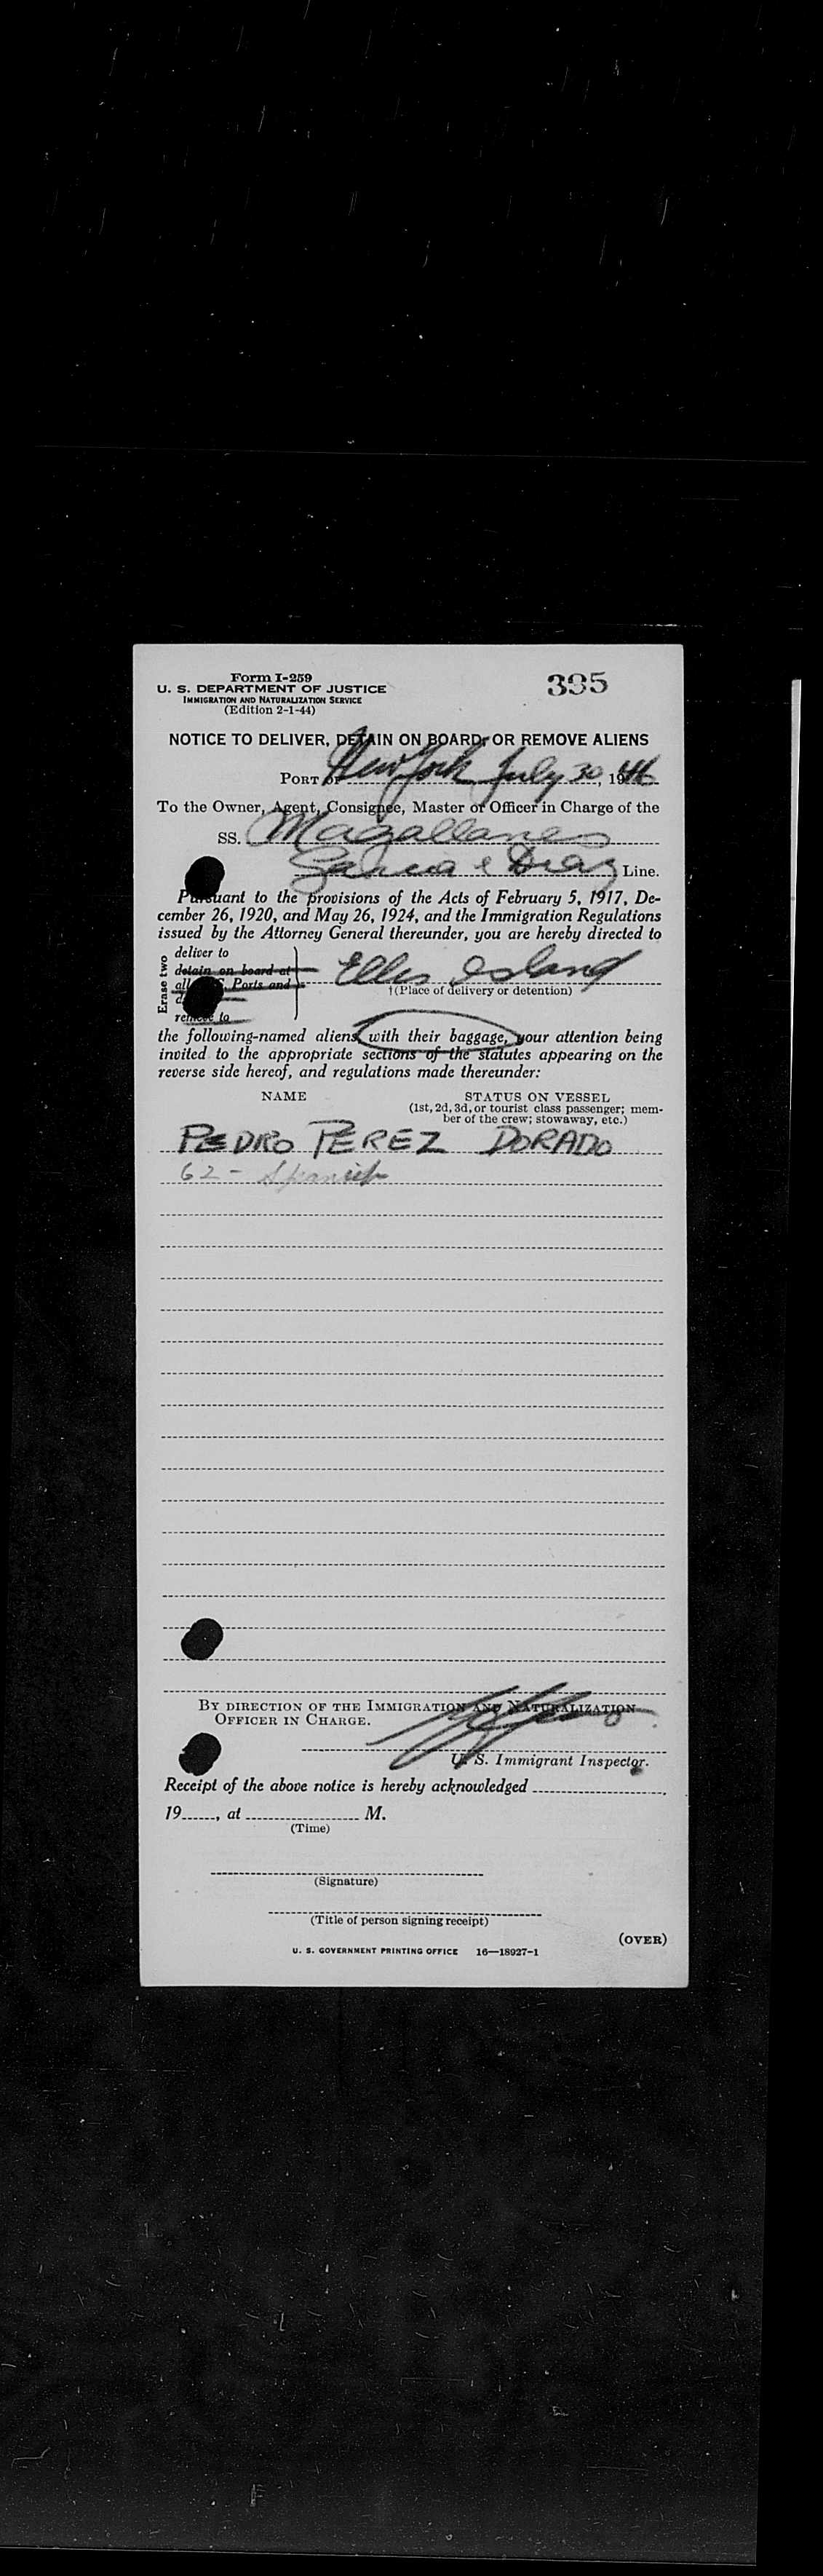 Form I-259
U. S. DEPARTMENT OF JUSTICE
IMMIGRATION AND NATURALIZATION SERVICE
(Edition 2-1-44)
395
NOTICE TO DELIVER, DETAIN ON BOARD, OR REMOVE ALIENS
PORT OF New York July 30, 1946
To the Owner, Agent, Consignee, Master or Officer in Charge of the
SS. Magallanes
Garcia & Diaz Line.
Pursuant to the provisions of the Acts of February 5, 1917, De-
cember 26, 1920, and May 26, 1924, and the Immigration Regulations
issued by the Attorney General thereunder, you are hereby directed to
Erase two
deliver to
detain on board at
all Ports and
remove to
Ellis Island
†(Place of delivery or detention)
the following-named aliens with their baggage, your attention being
invited to the appropriate sections of the statutes appearing on the
reverse side hereof, and regulations made thereunder:
NAME STATUS ON VESSEL
(1st, 2d, 3d, or tourist class passenger; mem-
ber of the crew; stowaway, etc.)
PEDRO PEREZ DORADO
62 - Spanish
BY DIRECTION OF THE IMMIGRATION AND NATURALIZATION
OFFICER IN CHARGE.
U. S. Immigrant Inspector.
Receipt of the above notice is hereby acknowledged
19, at M.
(Time)
(Signature)
(Title of person signing receipt)
(OVER)
U. S. GOVERNMENT PRINTING OFFICE 16—18927-1